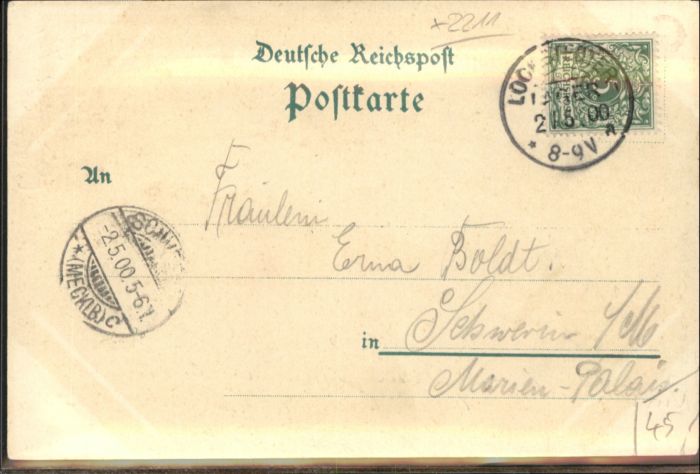 x2211
Deutsche Reichspost
Postkarte
LOCKSTEDTER
LAGER
2.5.00
* 8-9V *
An
Fräulein
Erna Boldt.
SCHWERIN
-2.5.00.5-6V.
* (MECKLB) c
in Schwerin i/M
Marien-Palais.
45